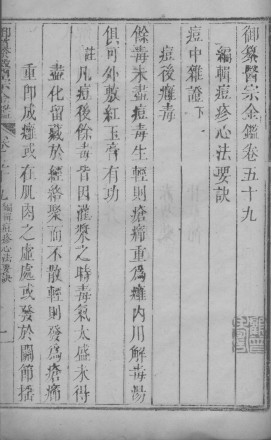 御纂醫宗金鑑卷五十九
編輯痘疹心法要訣
痘中雜證下
痘後癰毒
餘毒未盡痘毒生輕則瘡癤重爲癰內川解毒湯
俱可外敷紅玉膏有功
註凡痘後餘毒皆因灌漿之時毒氣太盛未得
盡化留藏於經絡聚而不散輕則發爲瘡癤
重卽成癰或在肌肉之虛處或發於關節撓